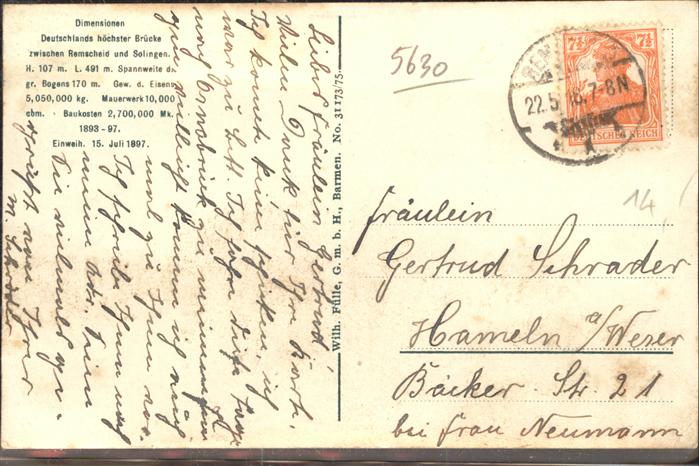 Dimensionen
Deutschlands höchster Brücke
zwischen Remscheid und Solingen.
H. 107 m. L. 491 m. Spannweite d.
gr. Bogens 170 m. Gew. d. Eisens
5,050,000 kg. Mauerwerk 10,000
cbm. Baukosten 2,700,000 Mk.
1893-97.
Einweih. 15. Juli 1897.
Liebes Fräulein Gertrud!
Vielen Dank für Ihre Karte.
Ich konnte keine schicken, ich
war zu Bett. Ich fahre diese Tage
nach Osnabrück zu meinem
vielleicht komme ich auch
mal zu Ihnen
Ich schreibe Ihnen noch
meine Adr. Seien
Sie vielmals ge-
grüßt von Ihrer
Wilh. Fülle, G. m. b. H., Barmen. No. 31173/75.
5630
22.5.18.7-8N
7½ 7½
DEUTSCHES REICH
14
Fräulein
Gertrud Schrader
Hameln a/Weser
Bäcker-Str. 21
bei Frau Neumann